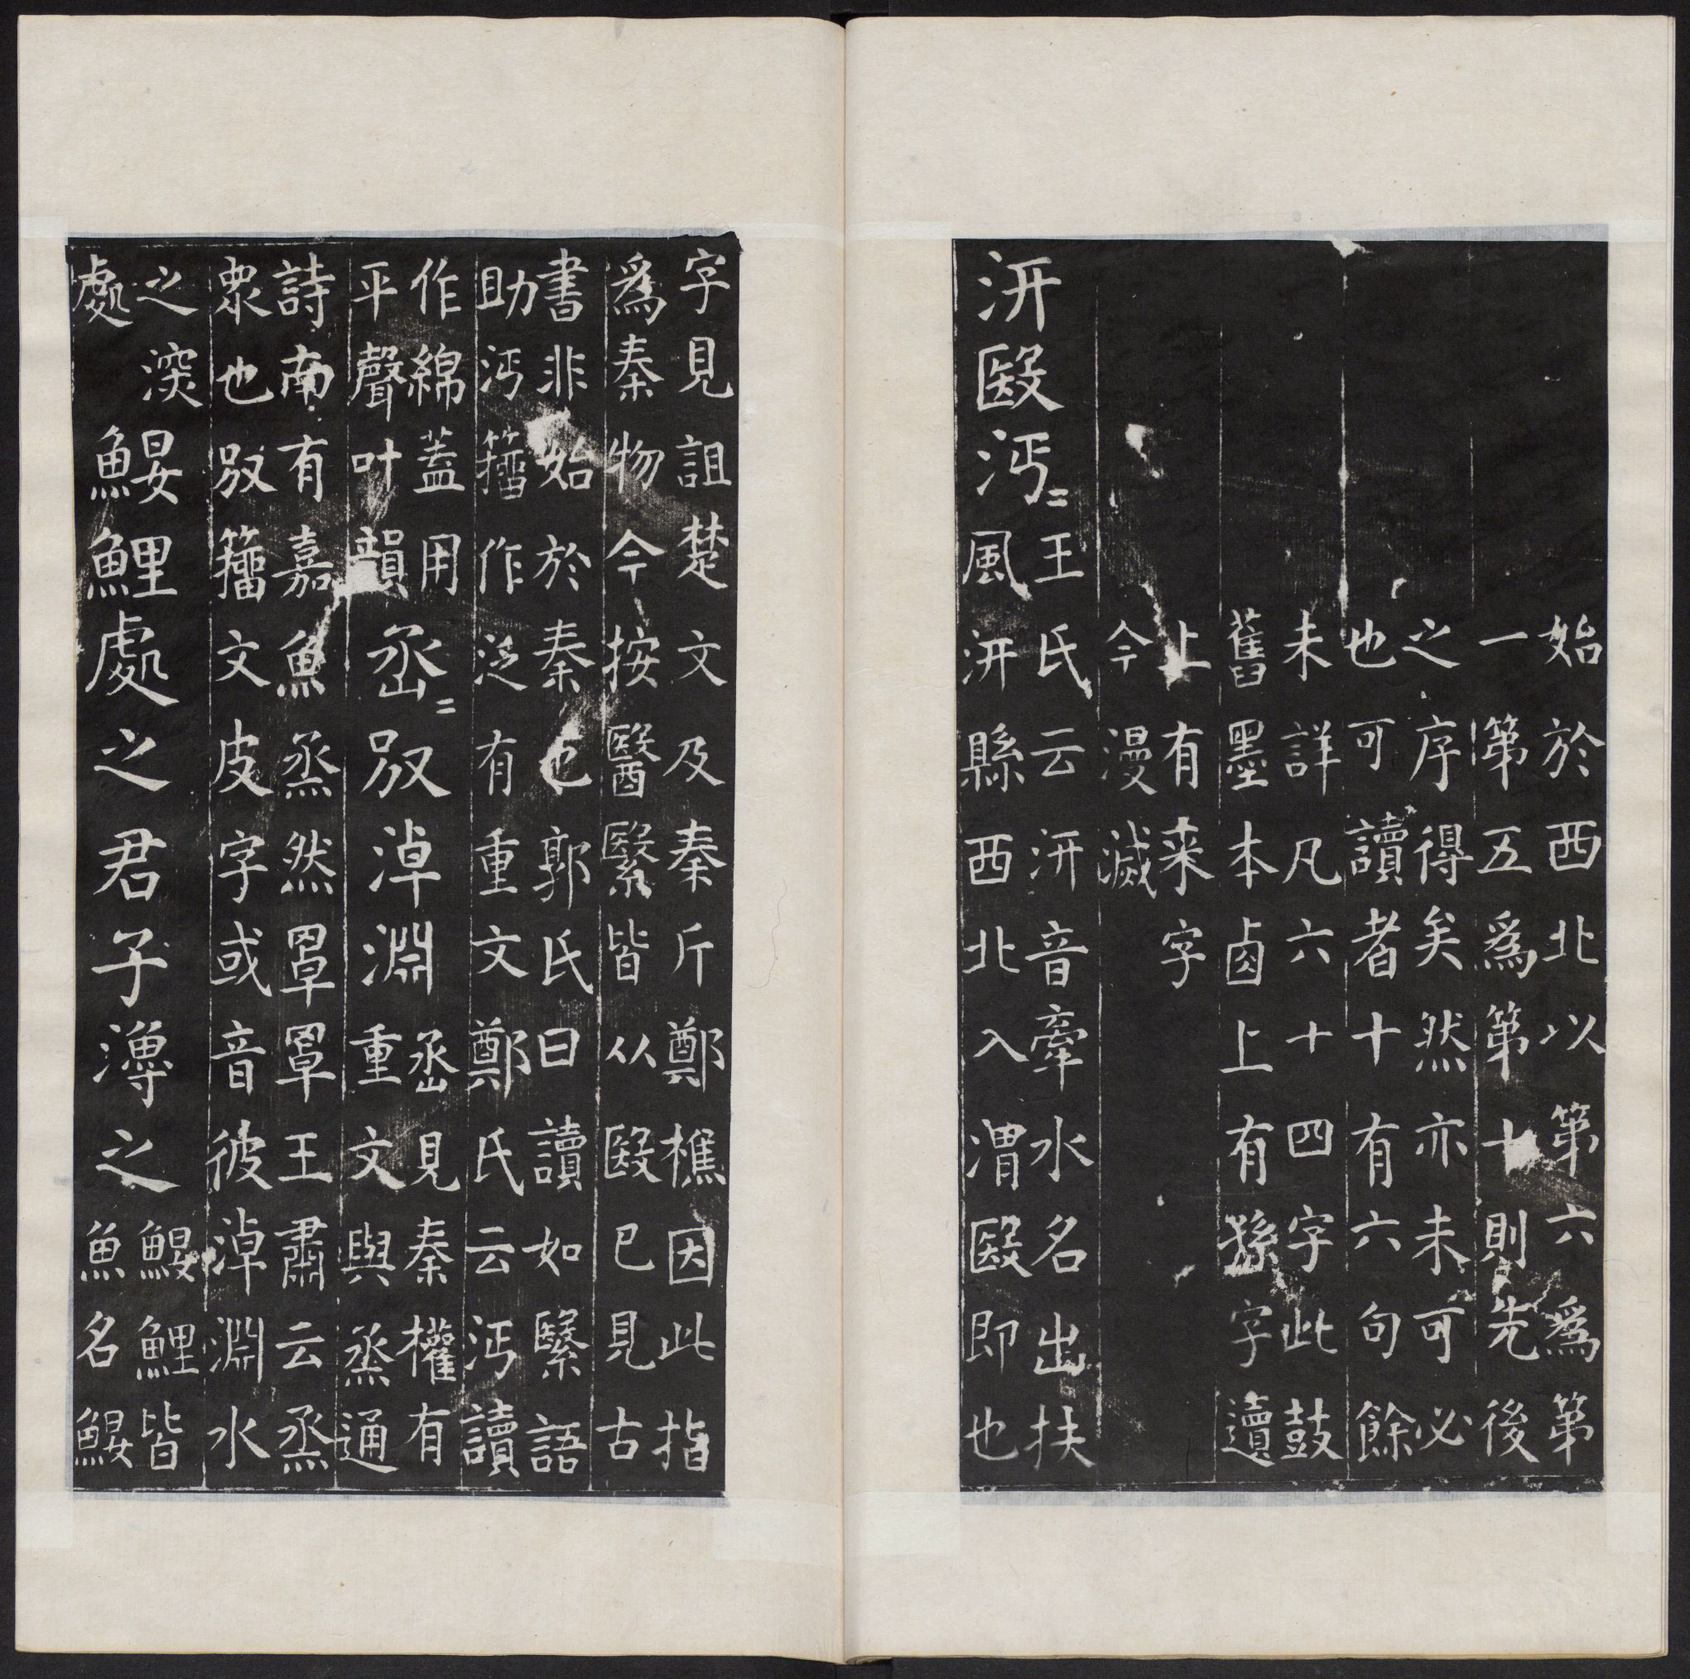 始於西北以第六爲第
一第五爲第十則先後
之序得矣然亦未可必
也可讀者十有六句餘
未詳凡六十四字此鼓
舊墨本卤上有鯀字邍
上有来字
今漫滅
汧殹沔〓
王氏云汧音牽水名出扶
風汧縣西北入渭殹即也
字見詛楚文及秦斤鄭樵因此指
爲秦物今按醫繄皆从殹已見古
書非始於秦也郭氏曰讀如緊語
助沔籀作泛有重文鄭氏云沔讀
作綿蓋用
平聲叶韻
烝〓𢻻淖淵
烝見秦權有
重文與烝通
詩南有嘉魚烝然罩罩王肅云烝
衆也𢻻籀文皮字或音彼淖淵水
之深
處
鰋鯉處之君子漁之
鰋鯉皆
魚名鰋